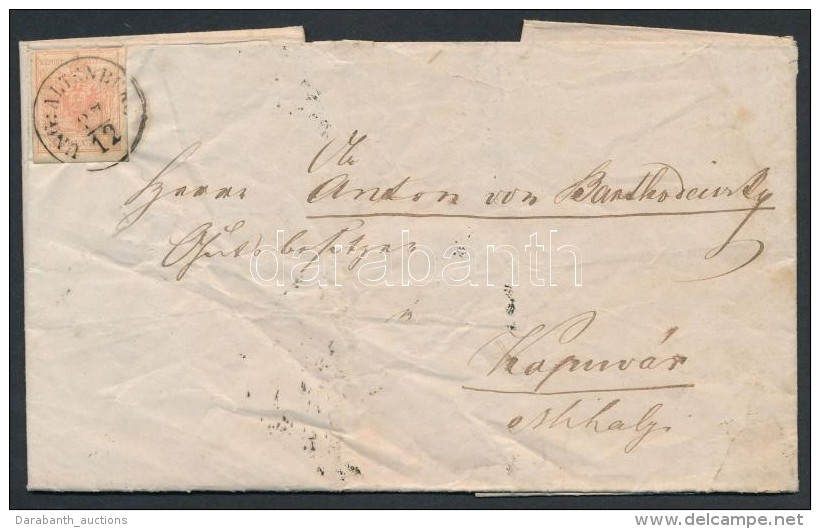 UNG: ALTENBURG
27
12
Herrn
Anton von Barthodeiszky
Gutsbesitzer
à
Kapuvár
Mihalyi
darabanth
Darabanth_auctions
delcampe.net